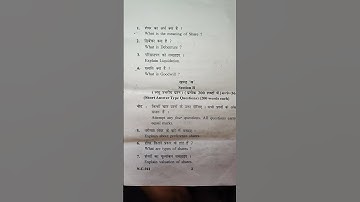 1. शेयर का अर्थ क्या है ?
What is the meaning of Share ?
2. डिबेंचर क्या है ?
What is Debenture ?
3. परिसमापन को समझाइए ।
Explain Liquidation.
4. ख्याति क्या है ?
What is Goodwill ?
खण्ड 'ब'
Section B
(लघु उत्तरीय प्रश्न) (प्रत्येक 200 शब्दों में)
(Short Answer Type Questions) (200 words each)
नोट : किन्हीं चार प्रश्नों के उत्तर दीजिए । सभी प्रश्नों के अंक
समान हैं ।
Attempt any four questions. All questions carry
equal marks.
5.
Explain about preference shares.
6. शेयर कितने प्रकार के होते हैं ?
What are types of shares
7. शेयरों का मूल्यांकन समझाइए ।
Explain valuation of shares.
2